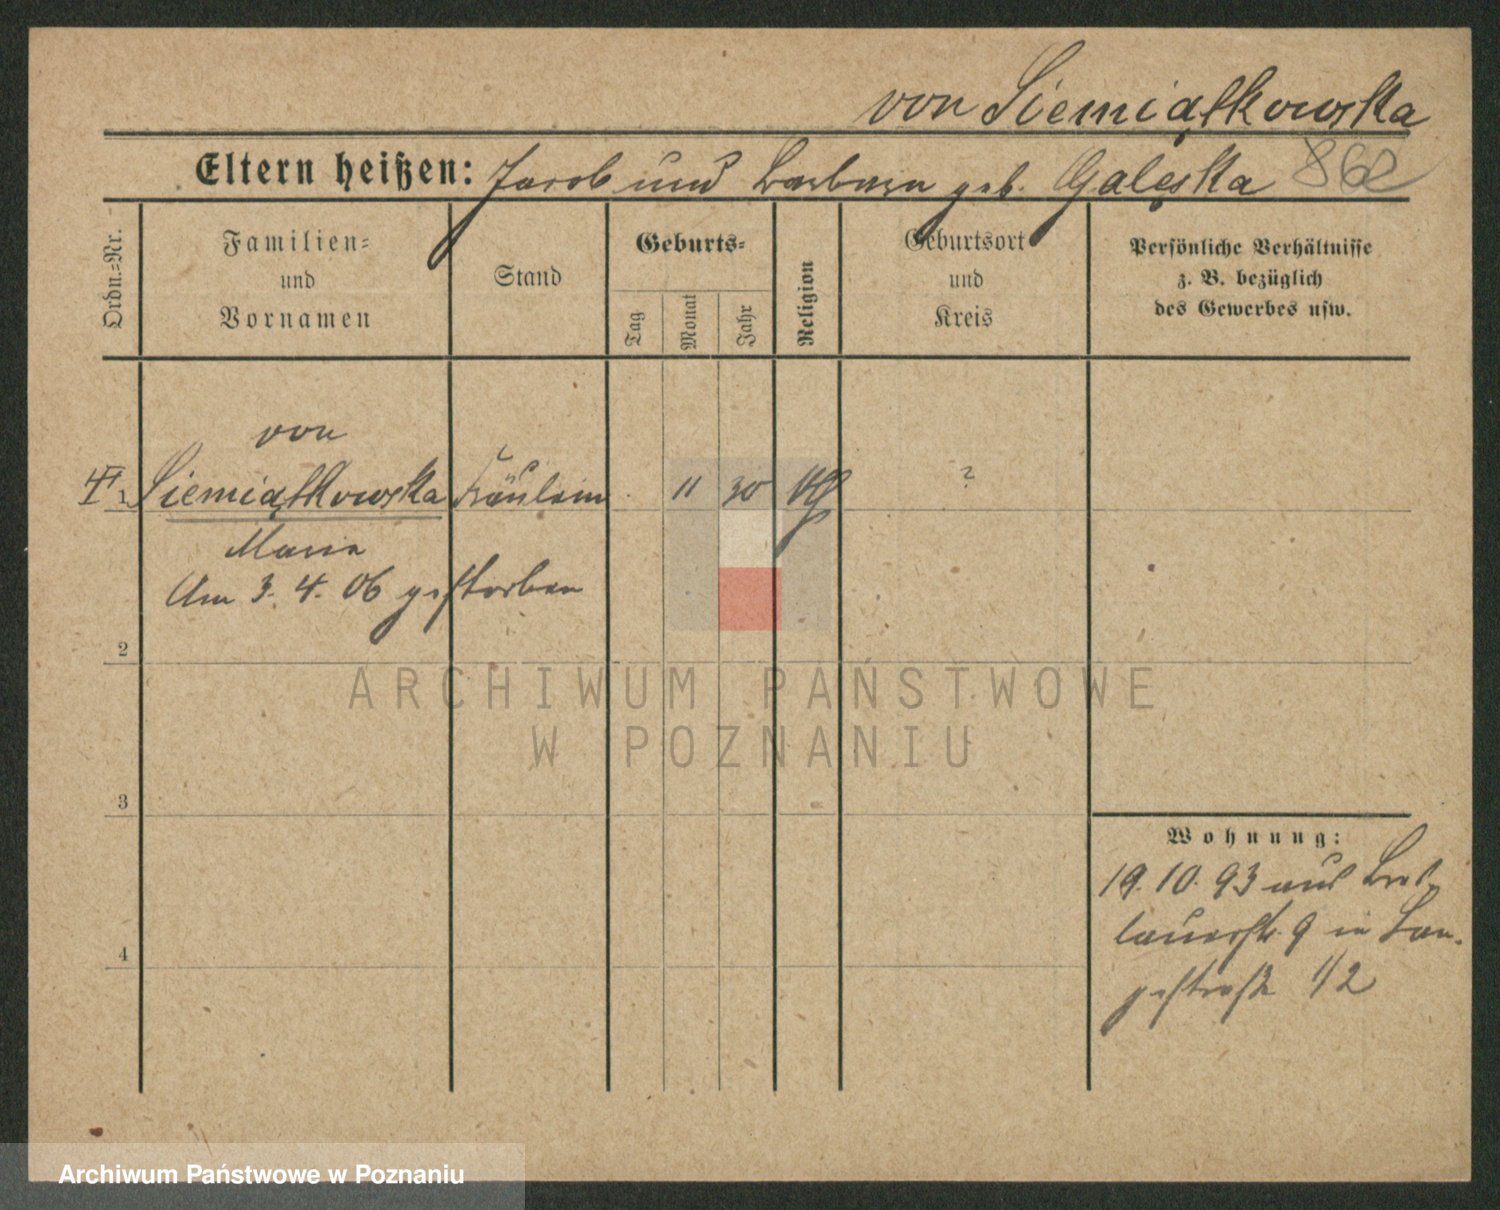 von Siemiątkowska
Eltern heißen: Jacob und Barbara geb. Gałęska 862
Ordn.=Nr.
Familien=
und
Vornamen
Stand
Geburts=
Tag
Monat
Jahr
Religion
Geburtsort
und
Kreis
Persönliche Verhältnisse
z. B. bezüglich
des Gewerbes usw.
von
1 Siemiątkowska Fräulein 11 30 ?
Maria
Am 3. 4. 06 gestorben
2
ARCHIWUM PAŃSTWOWE
W POZNANIU
3
4
Wohnung:
19. 10. 93 aus Bres-
lauerstr. 9 in Lan-
gestraße 12
Archiwum Państwowe w Poznaniu